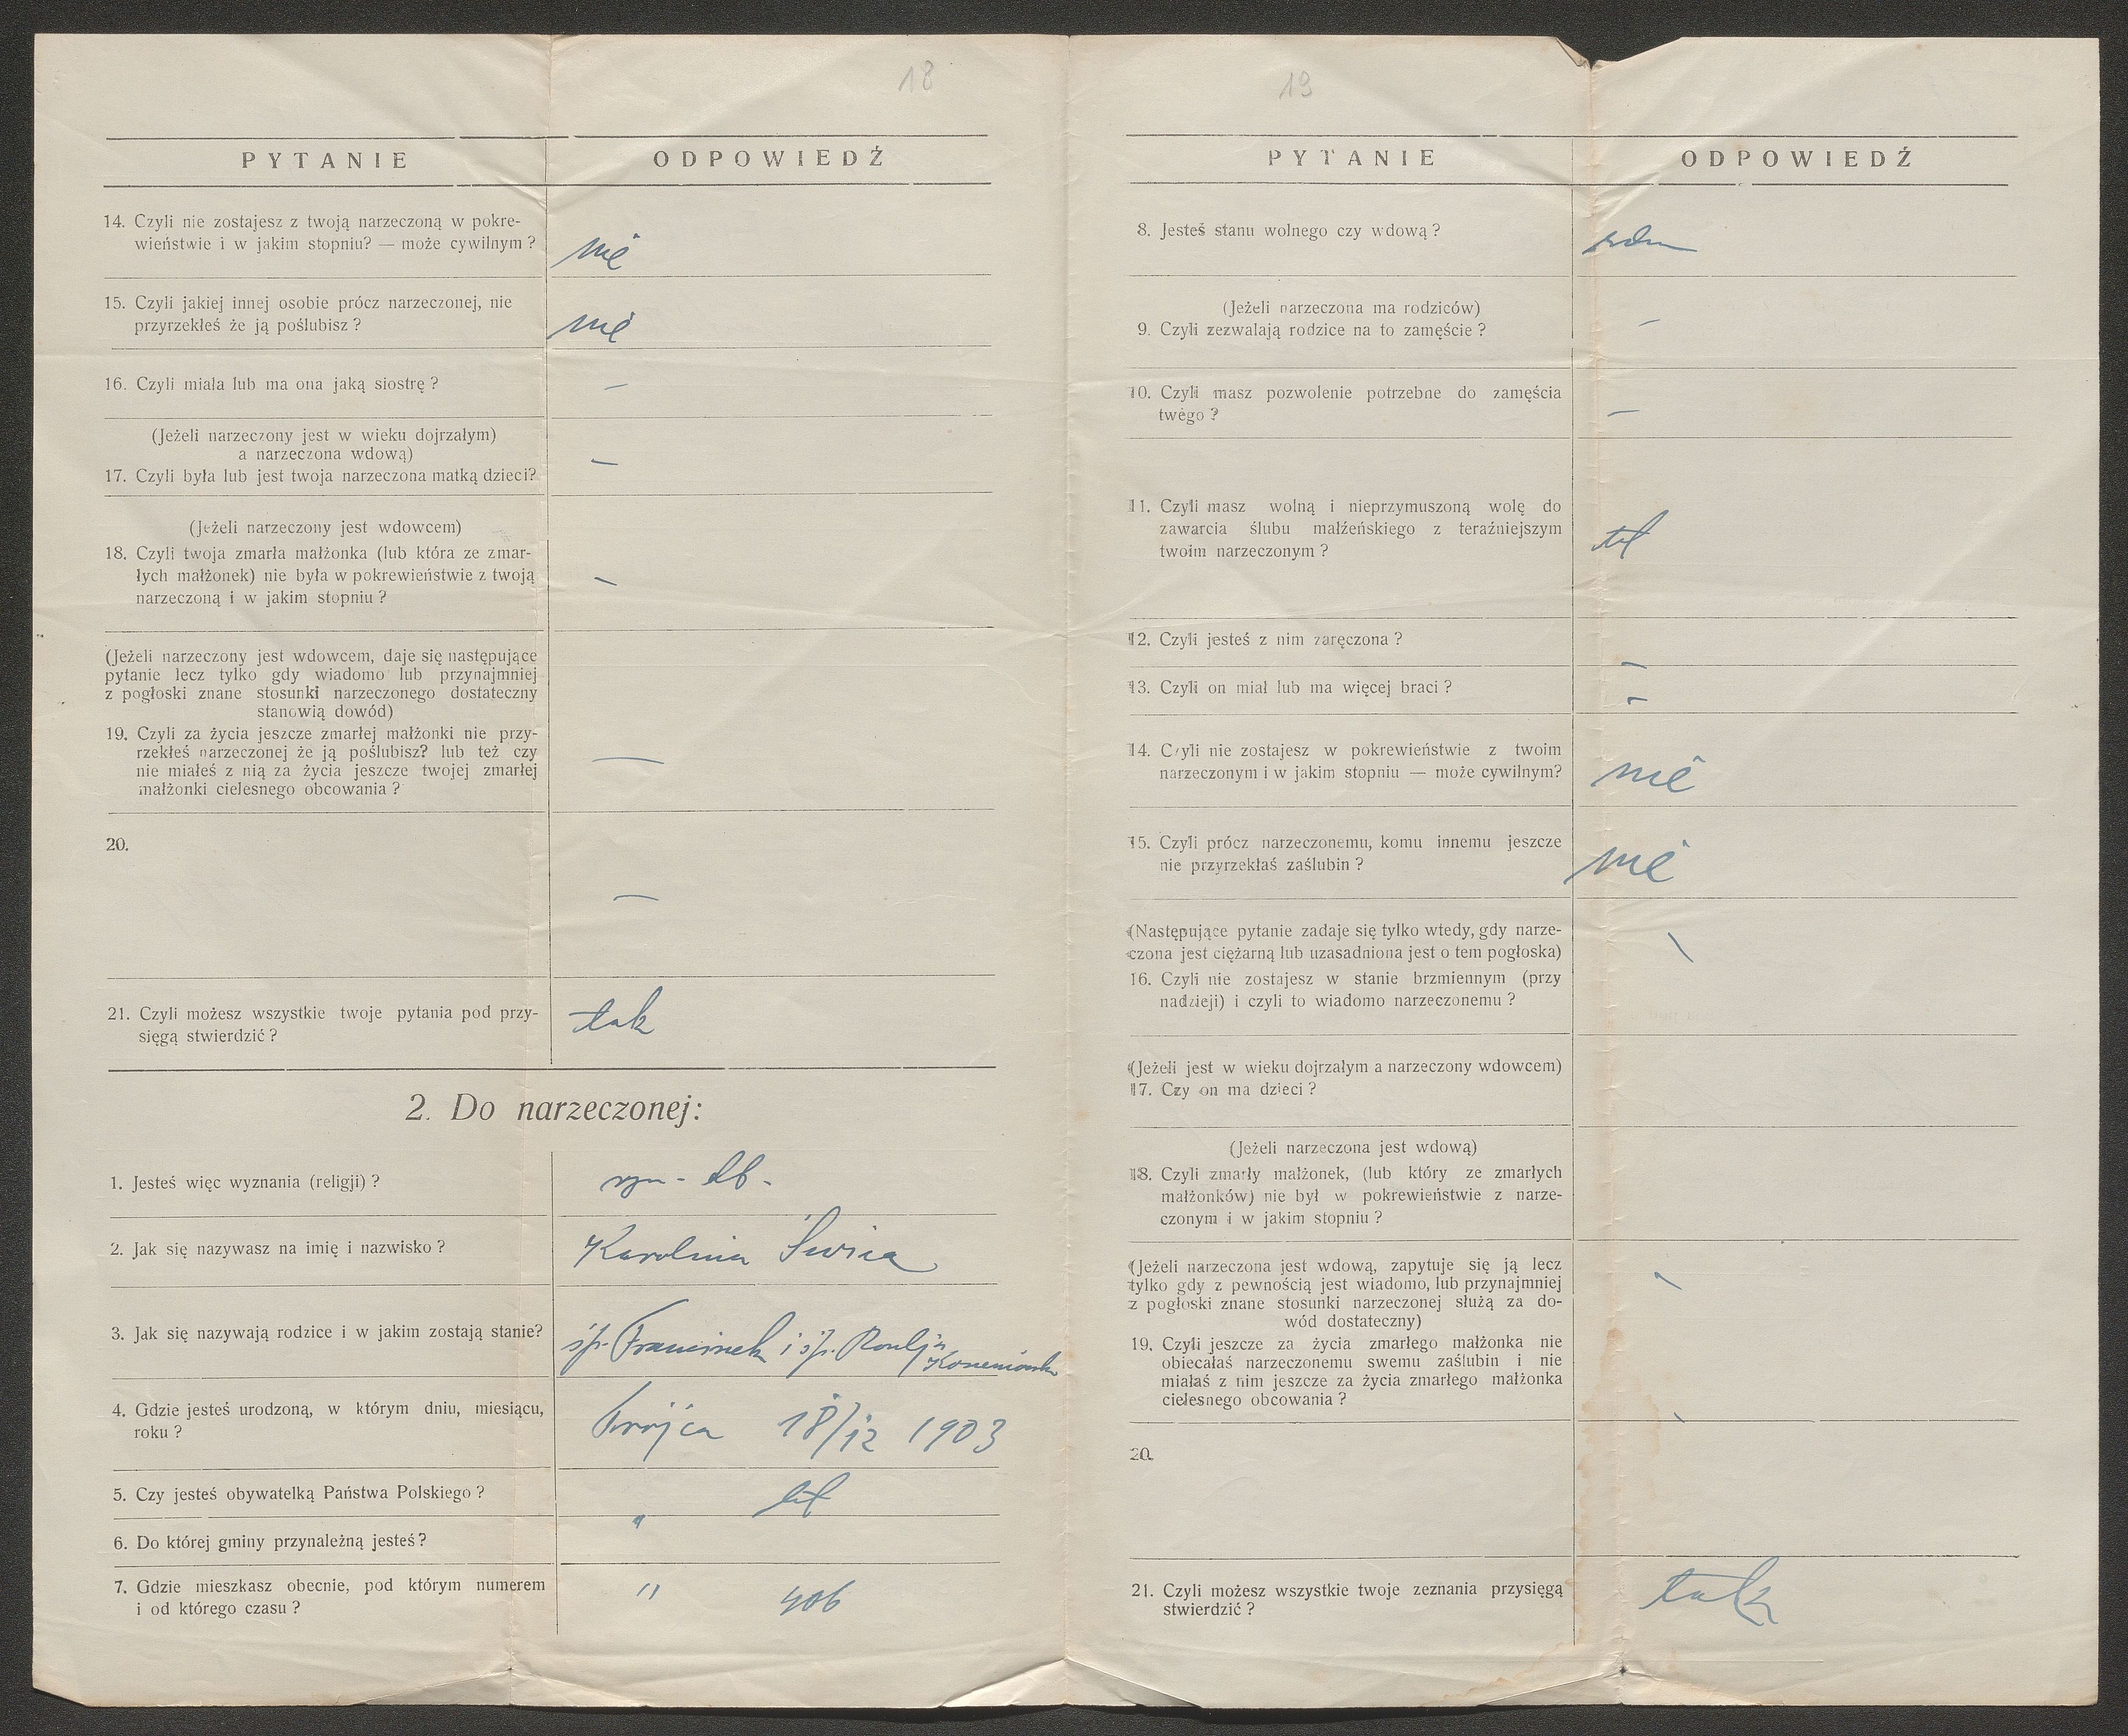 18
PYTANIE ODPOWIEDŹ
14. Czyli nie zostajesz z twoją narzeczoną w pokre-
wieństwie i w jakim stopniu? — może cywilnym ? nie
15. Czyli jakiej innej osobie prócz narzeczonej, nie
przyrzekłeś że ją poślubisz ? nie
16. Czyli miała lub ma ona jaką siostrę ? —
(Jeżeli narzeczony jest w wieku dojrzałym)
a narzeczona wdową)
17. Czyli była lub jest twoja narzeczona matką dzieci? —
(Jeżeli narzeczony jest wdowcem)
18. Czyli twoja zmarła małżonka (lub która ze zmar-
łych małżonek) nie była w pokrewieństwie z twoją —
narzeczoną i w jakim stopniu ?
(Jeżeli narzeczony jest wdowcem, daje się następujące
pytanie lecz tylko gdy wiadomo lub przynajmniej
z pogłoski znane stosunki narzeczonego dostateczny
stanowią dowód)
19. Czyli za życia jeszcze zmarłej małżonki nie przy-
rzekłeś narzeczonej że ją poślubisz? lub też czy —
nie miałeś z nią za życia jeszcze twojej zmarłej
małżonki cielesnego obcowania ?
20. —
21. Czyli możesz wszystkie twoje pytania pod przy- tak
sięgą stwierdzić ?
2. Do narzeczonej:
1. Jesteś więc wyznania (religji) ?
2. Jak się nazywasz na imię i nazwisko ? Karolina
3. Jak się nazywają rodzice i w jakim zostają stanie? śp. Franciszek i śp.
4. Gdzie jesteś urodzoną, w którym dniu, miesiącu, Trójca 18/12 1903
roku ?
5. Czy jesteś obywatelką Państwa Polskiego ? tak
6. Do której gminy przynależną jesteś ? "
7. Gdzie mieszkasz obecnie, pod którym numerem " 406
i od którego czasu ?
19
PYTANIE ODPOWIEDŹ
8. Jesteś stanu wolnego czy wdową ?
(Jeżeli narzeczona ma rodziców)
9. Czyli zezwalają rodzice na to zamęście ? —
10. Czyli masz pozwolenie potrzebne do zamęścia
twego ? —
11. Czyli masz wolną i nieprzymuszoną wolę do
zawarcia ślubu małżeńskiego z teraźniejszym tak
twoim narzeczonym ?
12. Czyli jesteś z nim zaręczona ? —
13. Czyli on miał lub ma więcej braci ? —
14. Czyli nie zostajesz w pokrewieństwie z twoim
narzeczonym i w jakim stopniu — może cywilnym? nie
15. Czyli prócz narzeczonemu, komu innemu jeszcze
nie przyrzekłaś zaślubin ? nie
(Następujące pytanie zadaje się tylko wtedy, gdy narze-
czona jest ciężarną lub uzasadniona jest o tem pogłoska)
16. Czyli nie zostajesz w stanie brzmiennym (przy
nadzieji) i czyli to wiadomo narzeczonemu ?
(Jeżeli jest w wieku dojrzałym a narzeczony wdowcem)
17. Czy on ma dzieci ?
(Jeżeli narzeczona jest wdową)
18. Czyli zmarły małżonek, (lub który ze zmarłych
małżonków) nie był w pokrewieństwie z narze-
czonym i w jakim stopniu ?
(Jeżeli narzeczona jest wdową, zapytuje się ją lecz
tylko gdy z pewnością jest wiadomo, lub przynajmniej
z pogłoski znane stosunki narzeczonej służą za do-
wód dostateczny)
19. Czyli jeszcze za życia zmarłego małżonka nie
obiecałaś narzeczonemu swemu zaślubin i nie
miałaś z nim jeszcze za życia zmarłego małżonka
cielesnego obcowania ?
20.
21. Czyli możesz wszystkie twoje zeznania przysięgą tak
stwierdzić ?